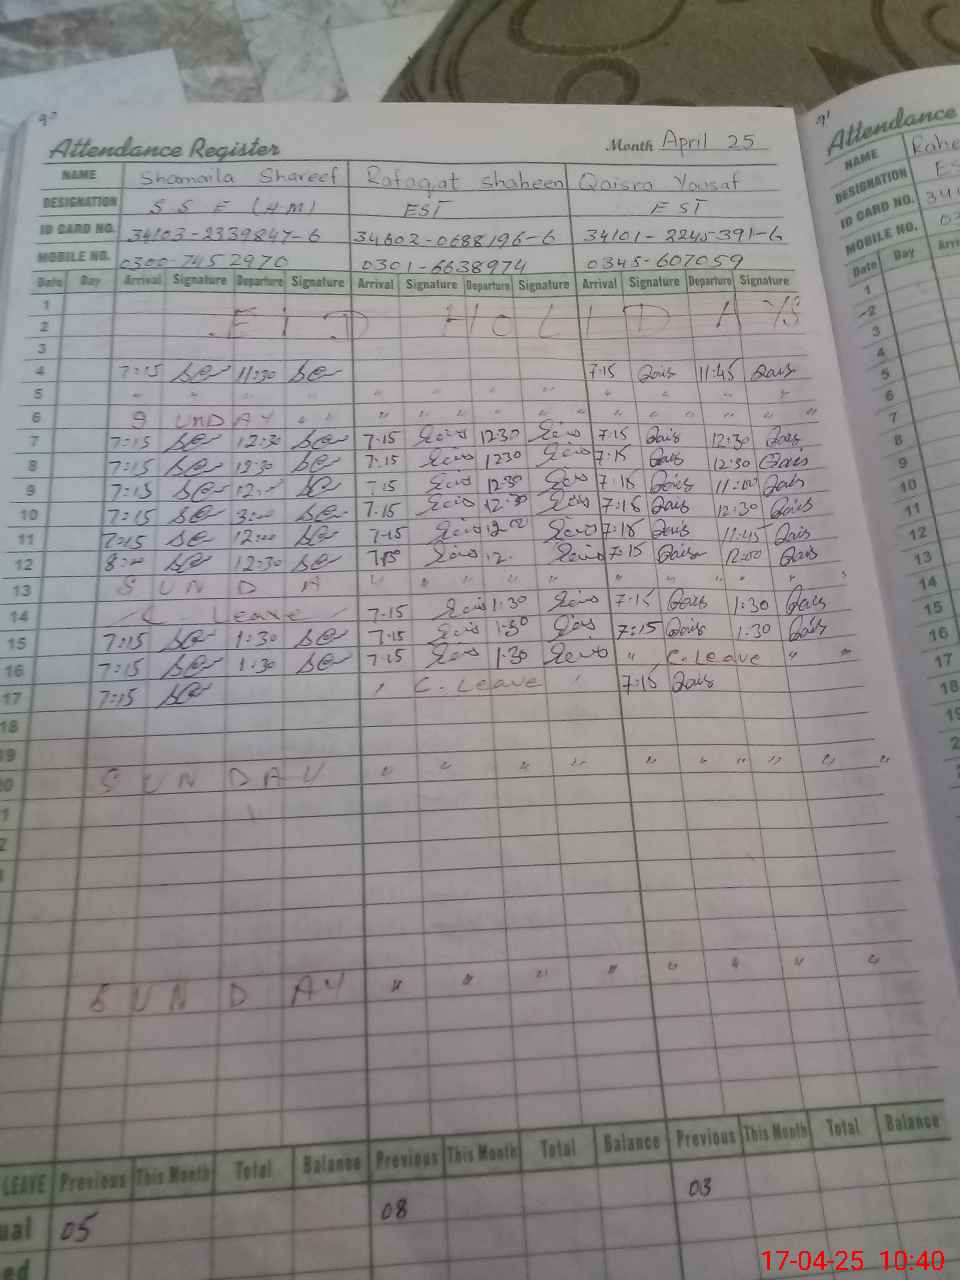 90
Attendance Register Month April 25
NAME Shamaila Shareef Rafaqat Shaheen Qaisra Yousaf
DESIGNATION S.S.E (HM) EST EST
ID CARD NO. 34103-2339847-6 34602-0688196-6 34101-2245391-6
MOBILE NO. 0300-7452970 0301-6638974 0345-607059
Date Day Arrival Signature Departure Signature Arrival Signature Departure Signature Arrival Signature Departure Signature
1
2 EID HOLIDAYS
3
4 7:15 11:30 7:15 Qais 11:45 Qais
5 " " " " " " " " " " "
6 SUNDAY " " " " " " " " " " "
7 7:15 12:30 7.15 12.30 7:15 Qais 12:30 Qais
8 7:15 12:30 7.15 1230 7:15 Qais 12:30 Qais
9 7:15 7.15 12.30 7:15 Qais 11:00 Qais
10 7:15 3:00 7.15 12.30 7:15 Qais 12:30 Qais
11 7:15 12:00 7.15 12.00 7:15 Qais 11:45 Qais
12 8:00 12:30 7.15 12. 7:15 Qais 12:00 Qais
13 S U N D A Y " " " " " " " "
14 C. Leave 7.15 1.30 7:15 Qais 1:30 Qais
15 7:15 1:30 7.15 1.30 7:15 Qais 1:30 Qais
16 7:15 1:30 7.15 1.30 " C. Leave " "
17 7:15 C. Leave 7:15 Qais
18
19
20 SUNDAY " " " " " " " " " "
SUNDAY " " " " " " " "
LEAVE Previous This Month Total Balance Previous This Month Total Balance Previous This Month Total Balance
ual 05 08 03
ed
91
Attendance
NAME Rahe
DESIGNATION ES
ID CARD NO. 34
MOBILE NO. 03
Date Day Arri
1
2
3
4
5
6
7
8
9
10
11
12
13
14
15
16
17
18
19
17-04-25 10:40